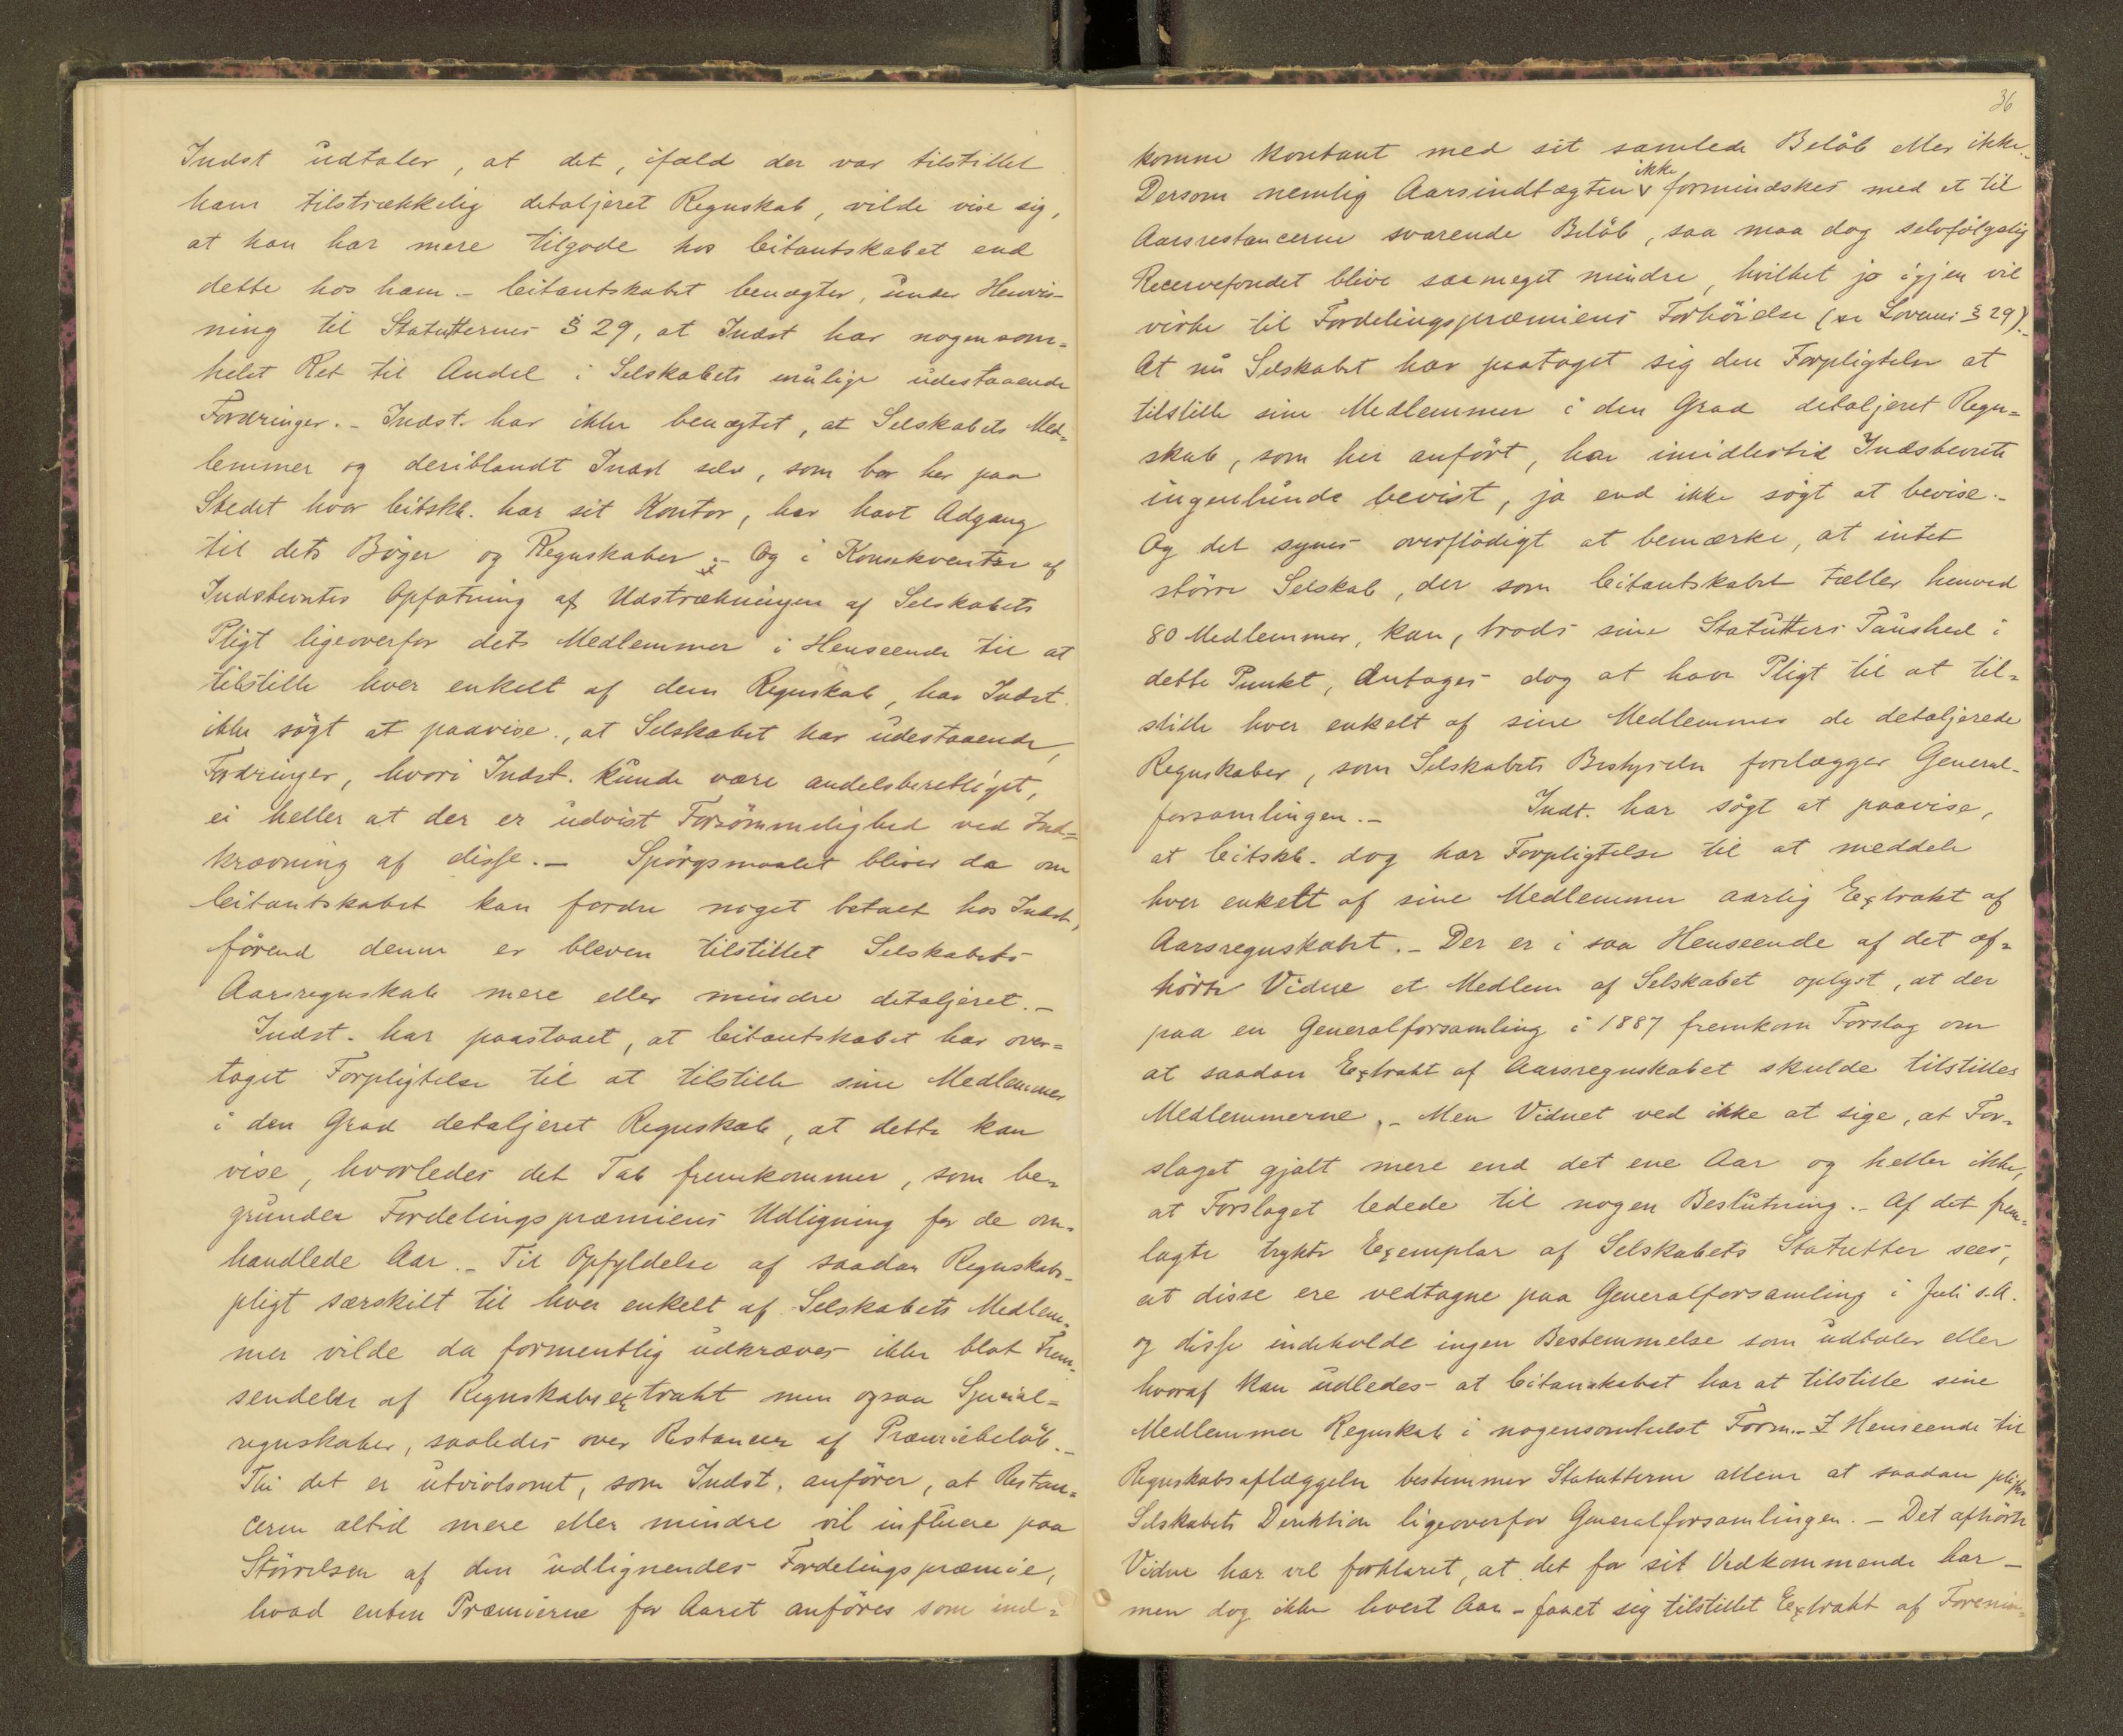 Indst udtaler, at det, ifald der var tilstillet
ham tilstrækkelig detaljeret Regnskab, vilde vise sig,
at han har mere tilgode hos Citantskabet end
dette hos ham. - Citantskabet benægter, under Henvis-
ning til Statutternes § 29, at Indst har nogensom=
helst Ret til Andel i Selskabets mulige udestaaende
Fordringer. - Indst. har ikke benægtet, at Selskabets Med=
lemmer og deriblandt Indst selv, som bor her paa
Stedet hvor Citskb. har sit Kontor, har havt Adgang
til dets Bøger og Regnskaber. - Og i Konsekventse af
Indstevntes Opfatning af Udstrækningen af Selskabets
Pligt ligeoverfor dets Medlemmer i Henseende til at
tilstille hver enkelt af dem Regnskab, har Indst.
ikke søgt at paavise, at Selskabet har udestaaende
Fordringer, hvori Indst. kunde være andelsberettiget,
ei heller at der er udvist Forsømmelighed ved Ind=
krævning af disse. - Spørgsmaalet bliver da om
Citantskabet kan fordre noget betalt hos Indst,
førend denne er bleven tilstillet Selskabets
Aarsregnskab mere eller mindre detaljeret. -
Indst. har paastaaet, at Citantskabet har over=
taget Forpligtelse til at tilstille sine Medlemmer
i den Grad detaljeret Regnskab, at dette kan
vise, hvorledes det Tab fremkommer, som be=
grunder Fordelingspræmiens Udligning for de om=
handlede Aar. - Til Opfyldelse af saadan Regnskabs-
pligt særskilt til hver enkelt af Selskabets Medlem=
mer vilde da formentlig udkræves ikke blot Frem=
sendelse af Regnskabsextrakt men ogsaa Special=
regnskaber, saaledes over Restancer af Præmiebeløb. -
Thi det er utvivlsomt, som Indst. anfører, at Restan=
cerne altid mere eller mindre vil influere paa
Størrelsen af den udlignendes Fordelingspræmie,
hvad enten Præmierne for Aaret anføres som ind=
36
komne kontant med sit samlede Beløb eller ikke. -
Dersom nemlig Aarsindtægten ikke formindskes med et til
Aarsrestancerne svarende Beløb, saa maa dog selvfølgelig
Recervefondet blive saameget mindre, hvilket jo igjen vil
virke til Fordelingspræmiens Forhøielse (se Lovens § 29). -
At nu Selskabet har paataget sig den Forpligtelse at
tilstille sine Medlemmer i den Grad detaljeret Regn=
skab, som her anført, har imidlertid Indstevnte
ingenlunde bevist, ja end ikke søgt at bevise. -
Og det synes overflødigt at bemærke, at intet
større Selskab, der som Citantskabet tæller henved
80 Medlemmer, kan, trods sine Statutters Taushed i
dette Punkt, antages dog at have Pligt til at til=
stille hver enkelt af sine Medlemmer de detaljerede
Regnskaber, som Selskabets Bestyrelse forelægger General-
forsamlingen. - Indst. har søgt at paavise,
at Citskb. dog har Forpligtelse til at meddele
hver enkelt af sine Medlemmer aarlig Extrakt af
Aarsregnskabet. - Der er i saa Henseende af det af=
hørte Vidne et Medlem af Selskabet oplyst, at der
paa en Generalforsamling i 1887 fremkom Forslag om
at saadan Extrakt af Aarsregnskabet skulde tilstilles
Medlemmerne. - Men Vidnet ved ikke at sige, at For=
slaget gjaldt mere end det ene Aar og heller ikke,
at Forslaget ledede til nogen Beslutning. - Af det frem=
lagte trykte Exemplar af Selskabets Statutter sees,
at disse ere vedtagne paa Generalforsamling i Juli s.A.
og disse indeholde ingen Bestemmelse som udtaler eller
hvoraf kan udledes at Citanskabet har at tilstille sine
Medlemmer Regnskab i nogensomhelst Form. - I Henseende til
Regnskabsaflæggelse bestemmer Statutterne allene at saadan pligter
Selskabets Direktion ligeoverfor Generalforsamlingen. - Det afhørte
Vidne har vel forklaret, at det for sit Vedkommende har -
men dog ikke hvert Aar - faaet sig tilstillet Extrakt af Forenin=